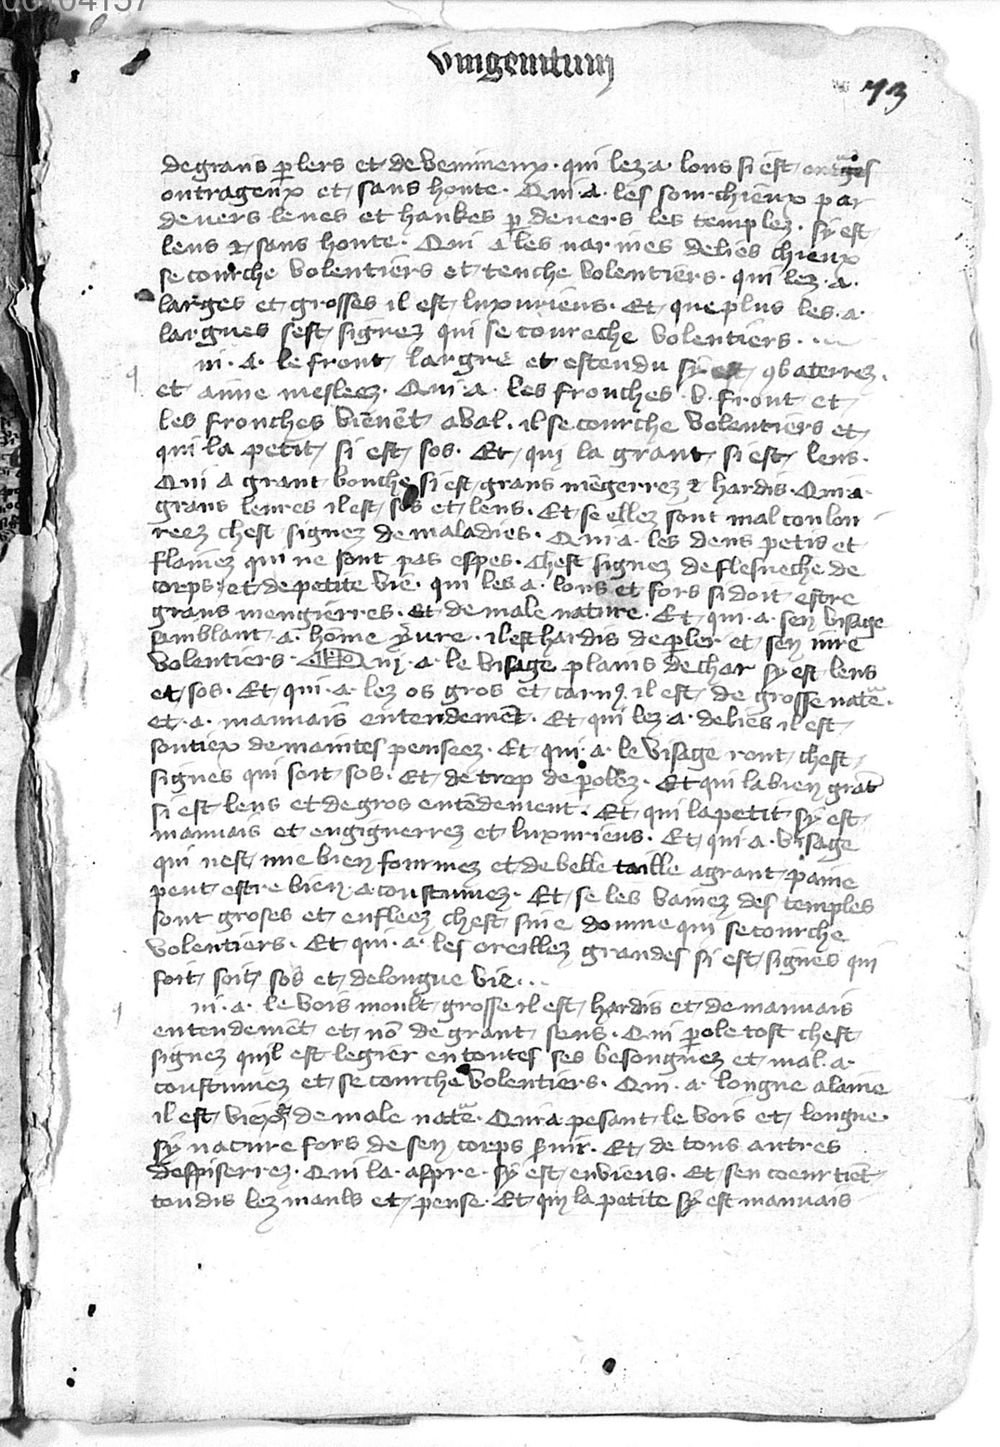 vnigenitum
73
de grans plers et de venimeux . qui lez a . lons si est
outrageux et sans honte . Qui . a . les sourchieux par
deuers le nes et haukes p deuers les templez . sy est
lens et sans honte . Qui a les narines delies chieux
se courche volentiers et tenche volentiers . qui lez . a .
larges et grosses il est luxuriens . Et que plus les . a .
largues sest signez qui se coureche volentiers .
ui . a . le front largre et estendu sy est 9baterrez .
et aime meslees . Qui . a . les fronches v . front et
les fronches viēnēt aval . il se courche volentiers et
qui la petit si est sos . Et qui la grant si est lens .
Qui a grant bouche si est grans mēgerrez et hardis . Qui a
grans leures il est sos et lens . Et se ellez sont mal coulou
reez chest signez de maladies . Qui a . les dens petis et
flamez qui ne sont pas espes . Chest signez de flesueche de
corps et de petite vie . qui les a . lons et fors si doit estre
grans mengierres . et de male nature . Et qui . a . sen visage
samblant . a . hōme yure . il est hardis de pler et sen
volentiers . Qui . a . le visage plains de char sy est lens
et sos . Et qui . a . lez os gros et carnus il est de grosse nate .
et . a . mauuais entendemēt . Et qui lez a . delies il est
soutiex de maintes pensees . Et qui . a . le visage ront chest
signes qui soit sos . Et de trop de polez . Et qui la bien grāt
si est lens et de gros entēdement . Et qui la petit sy est
mauuais et engignerrez et luxuriens . Et qui . a . visage
qui nest mie bien fourmez et de belle taille a grant paine
peut estre bien . acoustumez . Et se les vainez des temples
sont groses et enfleez chest sine domme qui se courche
volentiers . Et qui . a . les oreillez grandes si est signes qui
soit soit sos et de longue vie .
ui . a . le vois moult grosse il est hardis et de mauuais
entendemēt et nō de grant sens . Qui pole tost chest
signez quil est legier en toutes ses besongnez et mal . a
coustumez et se courche volentiers . Qui . a . longue alaine
il est viex de male nate . Qui a pesant le vois et longue .
sy nature fors de sen corps suir . Et de tous autres
despiserrez . Qui la aspre . sy est enuiens . Et sen coeur tiēt
toudis lez mauls et pense . Et qui la petite sy est mauuais